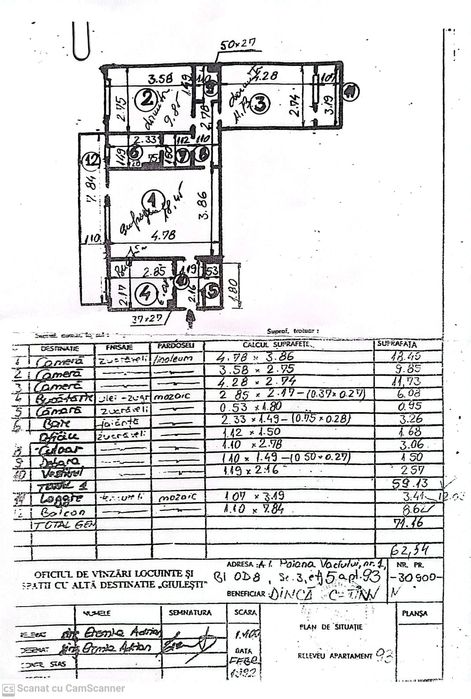 50×27
3.58
4.28
1.07
2
9.85
3
11.73
11
2.75
2.78
2.74
3.19
2.33
1.12
1.10
1.49
6
7
8
12
7.84
1
18.45
3.86
4.78
1.10
2.85
1.19
.53
2.17
4
6.08
10
2.16
5
1.80
37×27
DESTINATIE FINISAJE PARDOSELI CALCUL SUPRAFETE SUPRAFATA
1 Cameră zugrăveli linoleum 4.78 × 3.86 18.45
2 Cameră 3.58 × 2.75 9.85
3 Cameră 4.28 × 2.74 11.73
4 Bucătărie ulei-zugr mozaic 2.85 × 2.17-(0.37×0.27) 6.08
5 Cămară zugrăveli 0.53 × 1.80 0.95
6 Baie faianță 2.33 × 1.49-(0.75×0.28) 3.26
Oficiu zugrăveli 1.12 × 1.50 1.68
8 Culoar 1.10 × 2.78 3.06
9 1.10 × 1.49-(0.50×0.27) 1.50
10 Vestibul 1.19 × 2.16 2.57
TOTAL 1 59.13
11 Loggie mozaic 1.07 × 3.19 3.41
12 Balcon 1.10 × 7.84 8.62
TOTAL GEN 71.16
62,54
OFICIUL DE VÎNZĂRI LOCUINTE ŞI
SPATII CU ALTĂ DESTINATIE „GIULEŞTI”
ADRESA: Al. Poiana Vadului, nr. 1,
Bl OD8, Sc. 3, et 5 ap. 93
BENEFICIAR DINCĂ
NR. PR.
-30900-
N
NUMELE SEMNATURA SCARA
1:100
DATA
1992
PLAN DE SITUAŢIE
RELEVEU APARTAMENT 93
PLANŞA
Adrian
Adrian
CS Scanat cu CamScanner